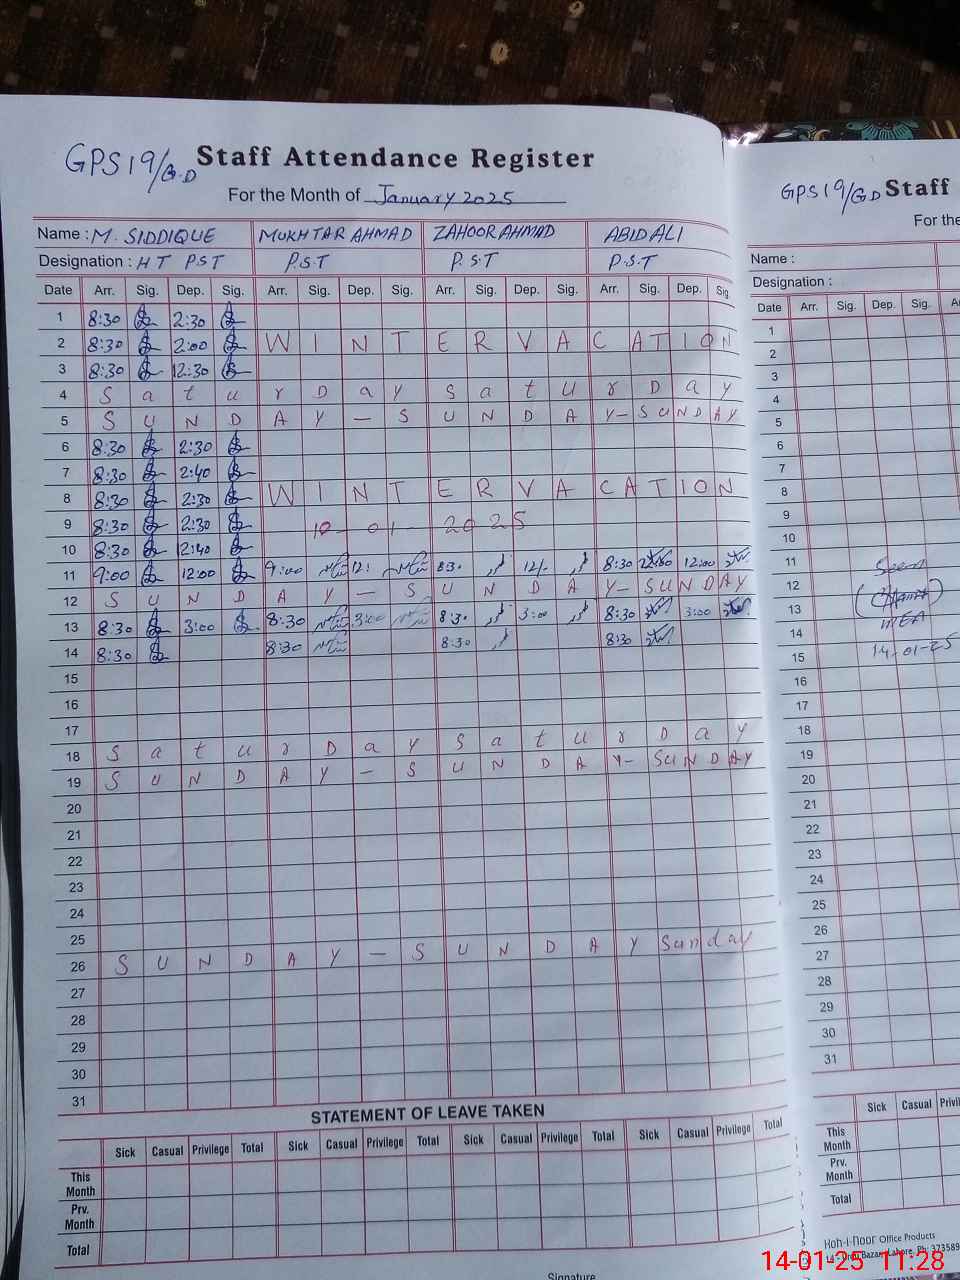 GPS 19/G.D Staff Attendance Register
For the Month of January 2025
Name : M. SIDDIQUE MUKHTAR AHMAD ZAHOOR AHMAD ABID ALI
Designation : H T P S T P.S.T P.S.T P.S.T
Date Arr. Sig. Dep. Sig. Arr. Sig. Dep. Sig. Arr. Sig. Dep. Sig. Arr. Sig. Dep. Sig.
1 8:30 2:30
2 8:30 2:00 WINTER VACATION
3 8:30 12:30
4 Saturday Saturday
5 SUNDAY — SUNDAY — SUNDAY
6 8:30 2:30
7 8:30 2:40
8 8:30 2:30 WINTER VACATION
9 8:30 2:30 10-01-2025
10 8:30 2:40
11 9:00 12:00 9:00 12: 8:30 12/- 8:30 12:00
12 SUNDAY — SUNDAY — SUNDAY
13 8:30 3:00 8:30 3:00 8:30 3:00 8:30 3:00
14 8:30 8:30 8:30 8:30
15
16
17
18 Saturday Saturday
19 SUNDAY — SUNDAY — SUNDAY
20
21
22
23
24
25
26 SUNDAY — SUNDAY Sunday
27
28
29
30
31
STATEMENT OF LEAVE TAKEN
Sick Casual Privilege Total Sick Casual Privilege Total Sick Casual Privilege Total Sick Casual Privilege Total
This Month
Prv. Month
Total
Signature
GPS 19/GD Staff
For the
Name :
Designation :
Date Arr. Sig. Dep. Sig.
1
2
3
4
5
6
7
8
9
10
11 Seen
12
13 MEA
14 14-01-25
15
16
17
18
19
20
21
22
23
24
25
26
27
28
29
30
31
Sick Casual
This Month
Prv. Month
Total
Koh-i-noor Office Products
14 - Urdu Bazar, Lahore. Ph: 373589
14-01-25 11:28